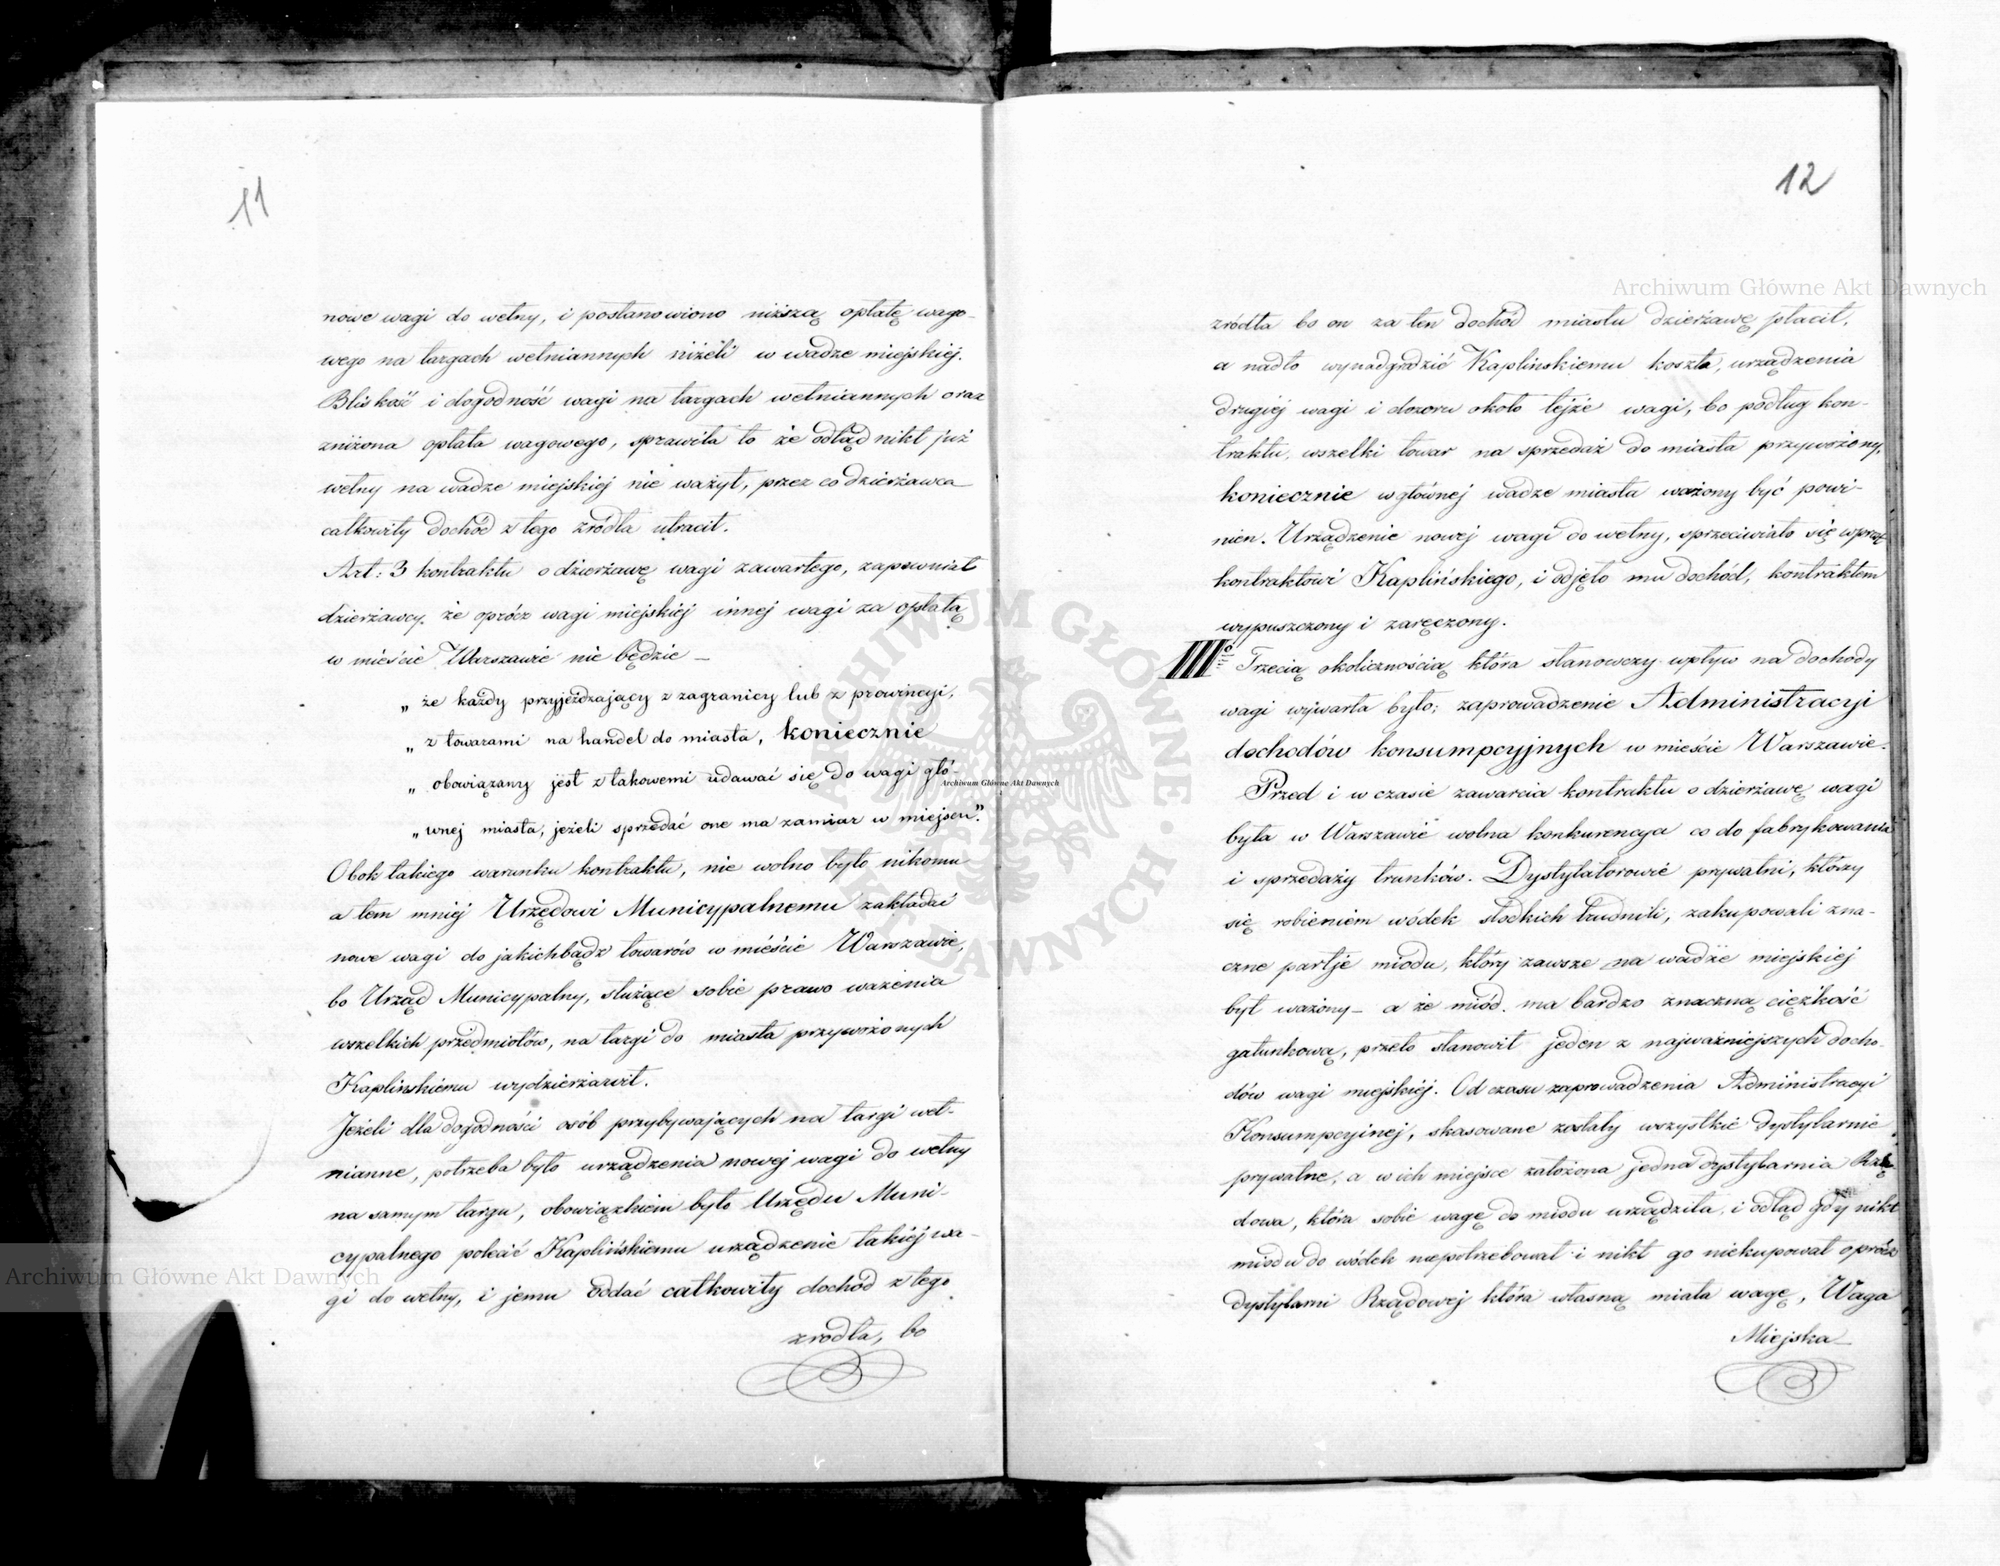 11
nowe wagi do wełny, i postanowiono niższą opłatę wago-
wego na targach wełniannych niżeli w wadze miejskiej.
Bliskość i dogodność wagi na targach wełniannych oraz
zniżona opłata wagowego, sprawiła to że odtąd nikt już
wełny na wadze miejskiej nie ważył, przez co dzierżawca
całkowity dochód z tego zródła utracił.
Art: 3 kontraktu o dzierżawę wagi zawartego, zapewniał
dzierżawcy, że oprócz wagi miejskiéj innej wagi za opłatą
w mieście Warszawie nie będzie —
„ że każdy przyjeżdzający z zagranicy lub z prowincyi,
„ z towarami na handel do miasta, koniecznie
„ obowiązany jest z takowemi udawać się do wagi głó-
„ wnej miasta, jeżeli sprzedać one ma zamiar w miejscu."
Obok takiego warunku kontraktu, nie wolno było nikomu
a tem mniej Urzędowi Municypalnemu zakładać
nowe wagi do jakichbądź towarów w mieście Warszawie,
bo Urząd Municypalny, służące sobie prawo ważenia
wszelkich przedmiotów, na targi do miasta przywożonych
Kaplińskiemu wydzierżawił.
Jeżeli dla dogodności osób przybywających na targi weł-
nianne, potrzeba było urządzenia nowej wagi do wełny
na samym targu, obowiązkiem było Urzędu Muni-
cypalnego polecić Kaplińskiemu urządzenie takiéj wa-
gi do wełny, i jemu oddać całkowity dochód z tego
zrodła, bo
12
zródła bo on za ten dochód miastu dzierżawę płacił,
a nadto wynadgrodzić Kaplińskiemu koszta, urządzenia
drugiéj wagi i dozoru około tejże wagi, bo podług kon-
traktu, wszelki towar na sprzedaż do miasta przywożony,
koniecznie w głównej wadze miasta ważony być powi-
nien. Urządzenie nowej wagi do wełny, sprzeciwiało się wprost
kontraktowi Kaplińskiego, i odjęło mu dochód, kontraktem
wypuszczony i zaręczony.
III° Trzecią okolicznością która stanowczy wpływ na dochody
wagi wywarła było; zaprowadzenie Administracyi
dochodów konsumpcyjnych w mieście Warszawie.
Przed i w czasie zawarcia kontraktu o dzierżawę wagi
była w Warszawie wolna konkurencya co do fabrykowania
i sprzedaży trunków. Dystylatorowie prywatni, którzy
się robieniem wódek słodkich trudnili, zakupowali zna-
czne partje miodu, który zawsze na wadze miejskiej
był ważony — a że miód ma bardzo znaczną ciężkość
gatunkową, przeto stanowił jeden z najważniejszych docho-
dów wagi miejskiéj. Od czasu zaprowadzenia Administracyi
Konsumpcyinej, skasowane zostały wszystkie dystylarnie
prywatne, a w ich miejsce założona jedna dystylarnia Rzą-
dowa, która sobie wagę do miodu urządziła, i odtąd gdy nikt
miodu do wódek niepotrzebował i nikt go niekupował oprócz
dystylarni Rządowej która własną miała wagę, Waga
Miejska
Archiwum Główne Akt Dawnych
Archiwum Główne Akt Dawnych
Archiwum Główne Akt Dawnych
ARCHIWUM GŁÓWNE · AKT DAWNYCH ·